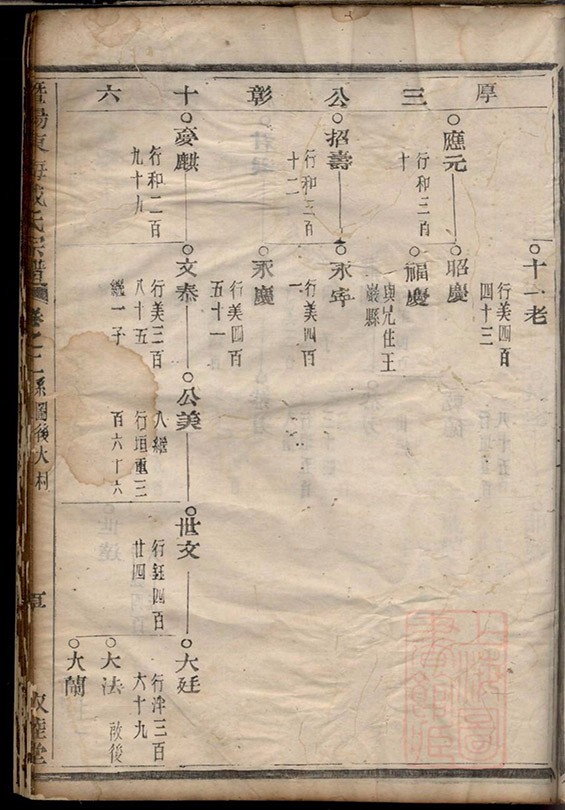 厚三公彰十六
十一老
行美四百
四十三
應元
行和三百
十
昭慶
福慶
與兄住王
巖縣
招壽
行和三百
十二
永寧
行美四百
一
永慶
行美四百
五十一
夢麒
行和二百
九十九
文泰
行美三百
八十五
繼一子
公美
入繼
行垣重三
百六十六
世文
行鈺四百
廿四
大廷
行淳三百
六十九
大法
啟後
大蘭
暨陽東海 氏宗譜 卷之二 系圖後大村
五